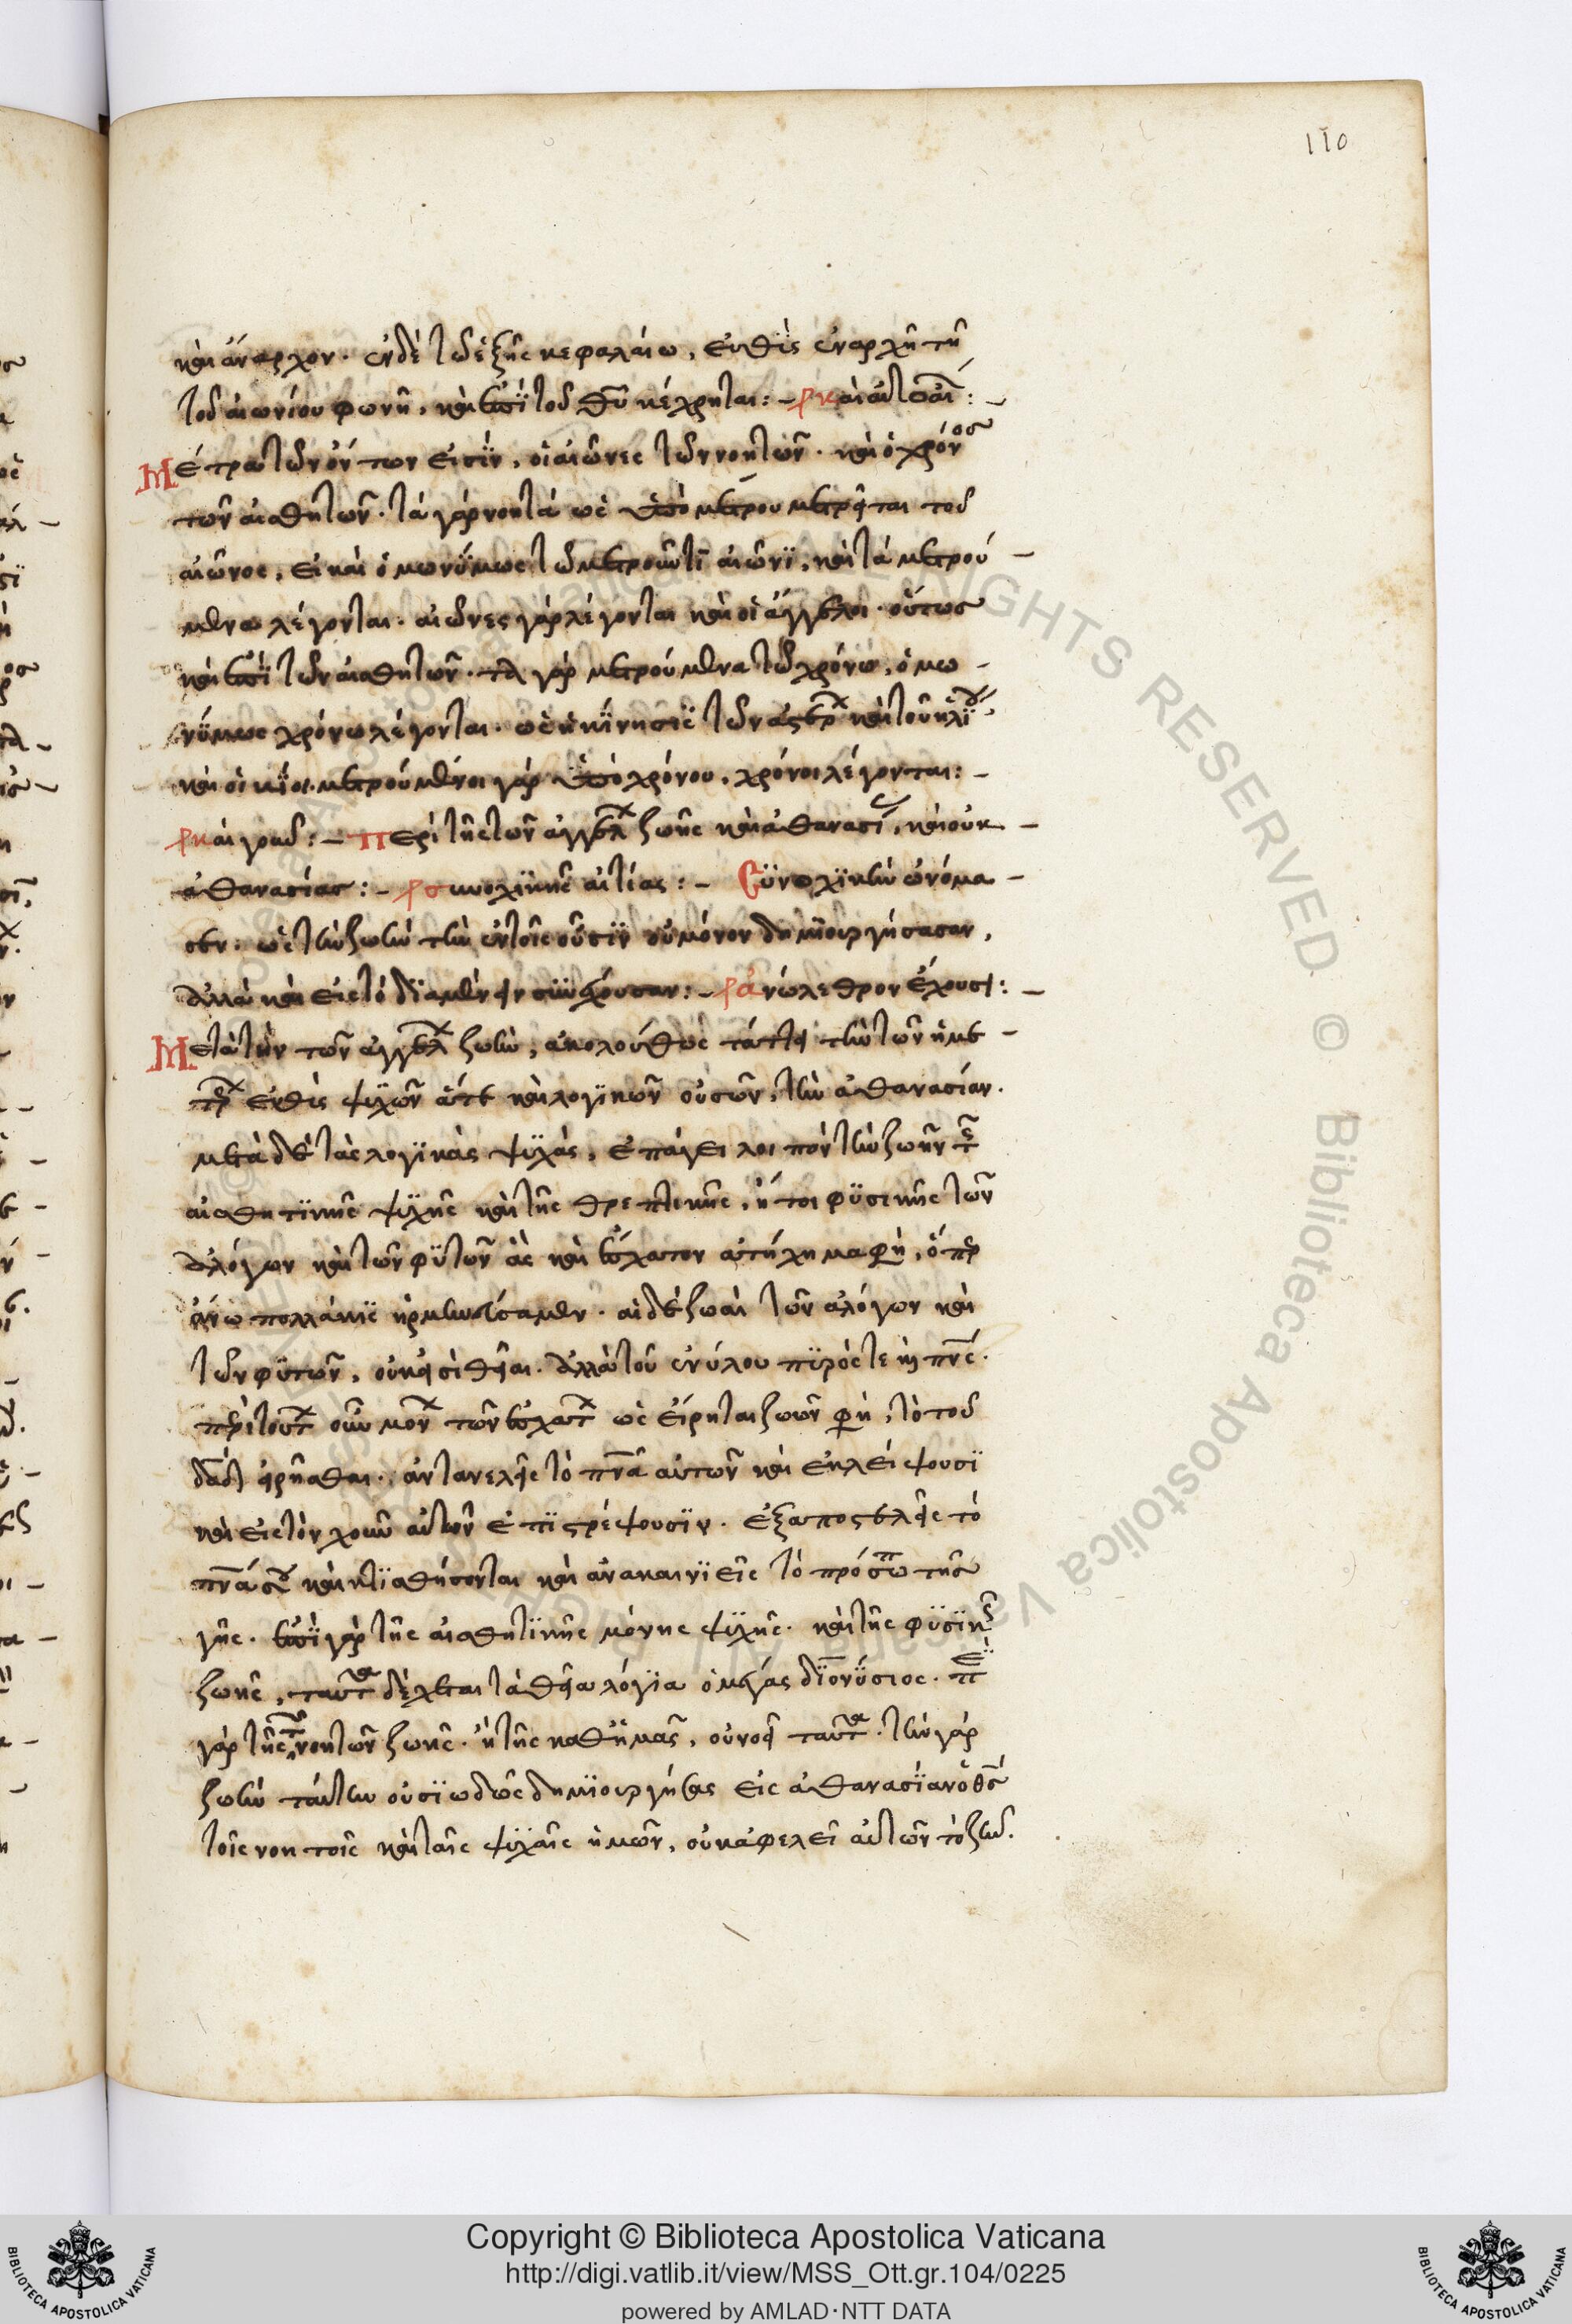 110
καὶ ἄναρχον. ἐν δὲ τῶ ἑξῆς κεφαλαίω, εὐθὺς ἐν ἀρχῆ τῆ
τοῦ αἰωνίου φωνῆ, καὶ ἐπὶ τοῦ θυ κέχρηται: – καὶ αὐτοαι: –
Μέτρα τῶν ὄντων εἰσὶν, οἱ αἰῶνες τῶν νοητῶν. καὶ ὁ χρόνος
τῶν αἰσθητῶν. τὰ γὰρ νοητὰ ὡς ὑπὸ μέτρου μετρεῖται τοῦ
αἰῶνος, εἰ καὶ ὁμωνύμως τῶ μετροῦντι αἰῶνι, καὶ τὰ μετρού –
μενα λέγονται. αἰῶνες γὰρ λέγονται καὶ οἱ ἄγγελοι. οὕτως
καὶ ἐπὶ τῶν αἰσθητῶν. τὰ γὰρ μετρούμενα τῶ χρόνω, ὁμω –
νύμως χρόνω λέγονται. ὡς ἡ κίνησις τῶν ἀστέρ καὶ τοῦ ἡλίου.
καὶ οἱ μετρούμενοι γὰρ ὑπὸ χρόνου, χρόνοι λέγονται: –
Περὶ τῆς τῶν ἀγγέλ ζωῆς καὶ ἀθανασί, καὶ οὐκ –
ἀθανασίας: – συνοχικῆς αἰτίας: – Συνοχικὴν ὠνόμα –
σεν. ὡς τὴν ζωὴν τὴν ἐν τοῖς οὖσιν οὐ μόνον δημιουργήσασαν,
ἀλλὰ καὶ εἰς τὸ διαμένειν συνέχουσαν: – ἀνώλεθρον ἔχουσι: –
Μετὰ τὴν τῶν ἀγγέλ ζωὴν, ἀκολούθως τάττει τὴν τῶν ἡμε –
τέρ εὐθὺς ψυχῶν ἅτε καὶ λογικῶν οὐσῶν, τὴν ἀθανασίαν.
μετὰ δὲ τὰς λογικὰς ψυχὰς, ἐπάγει λοιπὸν τὴν ζωὴν τῆς
αἰσθητικῆς ψυχῆς καὶ τῆς θρεπτικῆς, ἤτοι φυσικῆς τῶν
ἀλόγων καὶ τῶν φυτῶν ἃς καὶ ἔσχατον ἀπήχημα φησὶ, ὅπερ
ἄνω πολλάκις ἡρμηνεύσαμεν. αἱ δὲ ζωαὶ τῶν ἀλόγων καὶ
τῶν φυτῶν, οὐκ εἰσὶ θεῖαι. ἀλλὰ τοῦ ἐνύλου πυρός τε καὶ πνς.
περὶ τούτ οὖν μόν τῶν ἐσχάτ ὡς εἴρηται ζωῶν φησὶ, τὸ τοῦ
δαδ εἰρῆσθαι. ἀντανελεῖς τὸ πνα αὐτῶν καὶ ἐκλείψουσι
καὶ εἰς τὸν χοῦν αὐτῶν ἐπιστρέψουσιν. ἐξαποστελεῖς τὸ
πνα σου καὶ κτισθήσονται καὶ ἀνακαινιεῖς τὸ πρόσωπ τῆς
γῆς. ἐπὶ γὰρ τῆς αἰσθητικῆς μόνης ψυχῆς. καὶ τῆς φυσικῆς
ζωῆς, ταῦτα δέχεται τὰ θεῖα λόγια ὁ μέγας διονύσιος. ἐπὶ
γὰρ τῆς τῶν νοητῶν ζωῆς. ἢ τῆς καθ' ἡμᾶς, οὐ νοεῖ ταῦτα. τὴν γὰρ
ζωὴν ταύτην οὐσιωδῶς δημιουργήσας εἰς ἀθανασίαν ὁ θς
τοῖς νοητοῖς καὶ ταῖς ψυχαῖς ἡμῶν, οὐκ ἀφελεῖ αὐτῶν τὸ ζην.
RIGHTS RESERVED © Biblioteca Apostolica Vaticana
Copyright © Biblioteca Apostolica Vaticana
http://digi.vatlib.it/view/MSS_Ott.gr.104/0225
powered by AMLAD·NTT DATA
BIBLIOTECA APOSTOLICA VATICANA
BIBLIOTECA APOSTOLICA VATICANA